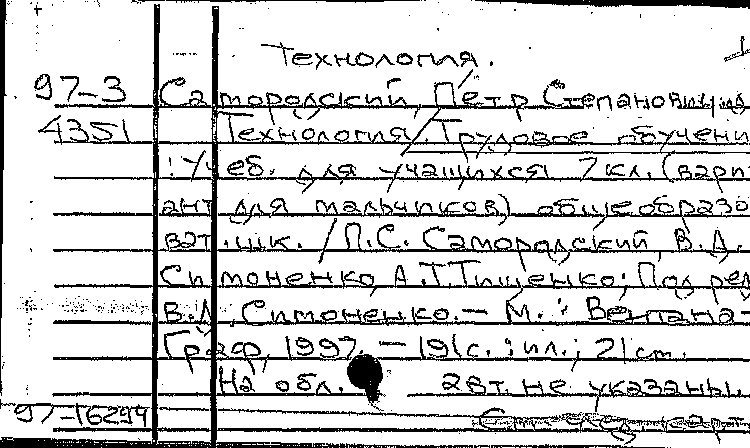 Технология.
97-3 Самородский, Пётр Степанович
4351 Технология. Трудовое обучени
: Учеб. для учащихся 7 кл. (вари
ант для мальчиков) общеобразо
ват. шк. / П.С. Самородский, В.Д.
Симоненко, А.Т. Тищенко; Под ред
В.Д. Симоненко. — М. : Вентана-
Граф, 1997. — 191 с. : ил. ; 21 см.
На обл. авт. не указаны.
97-16294 См. след. карт